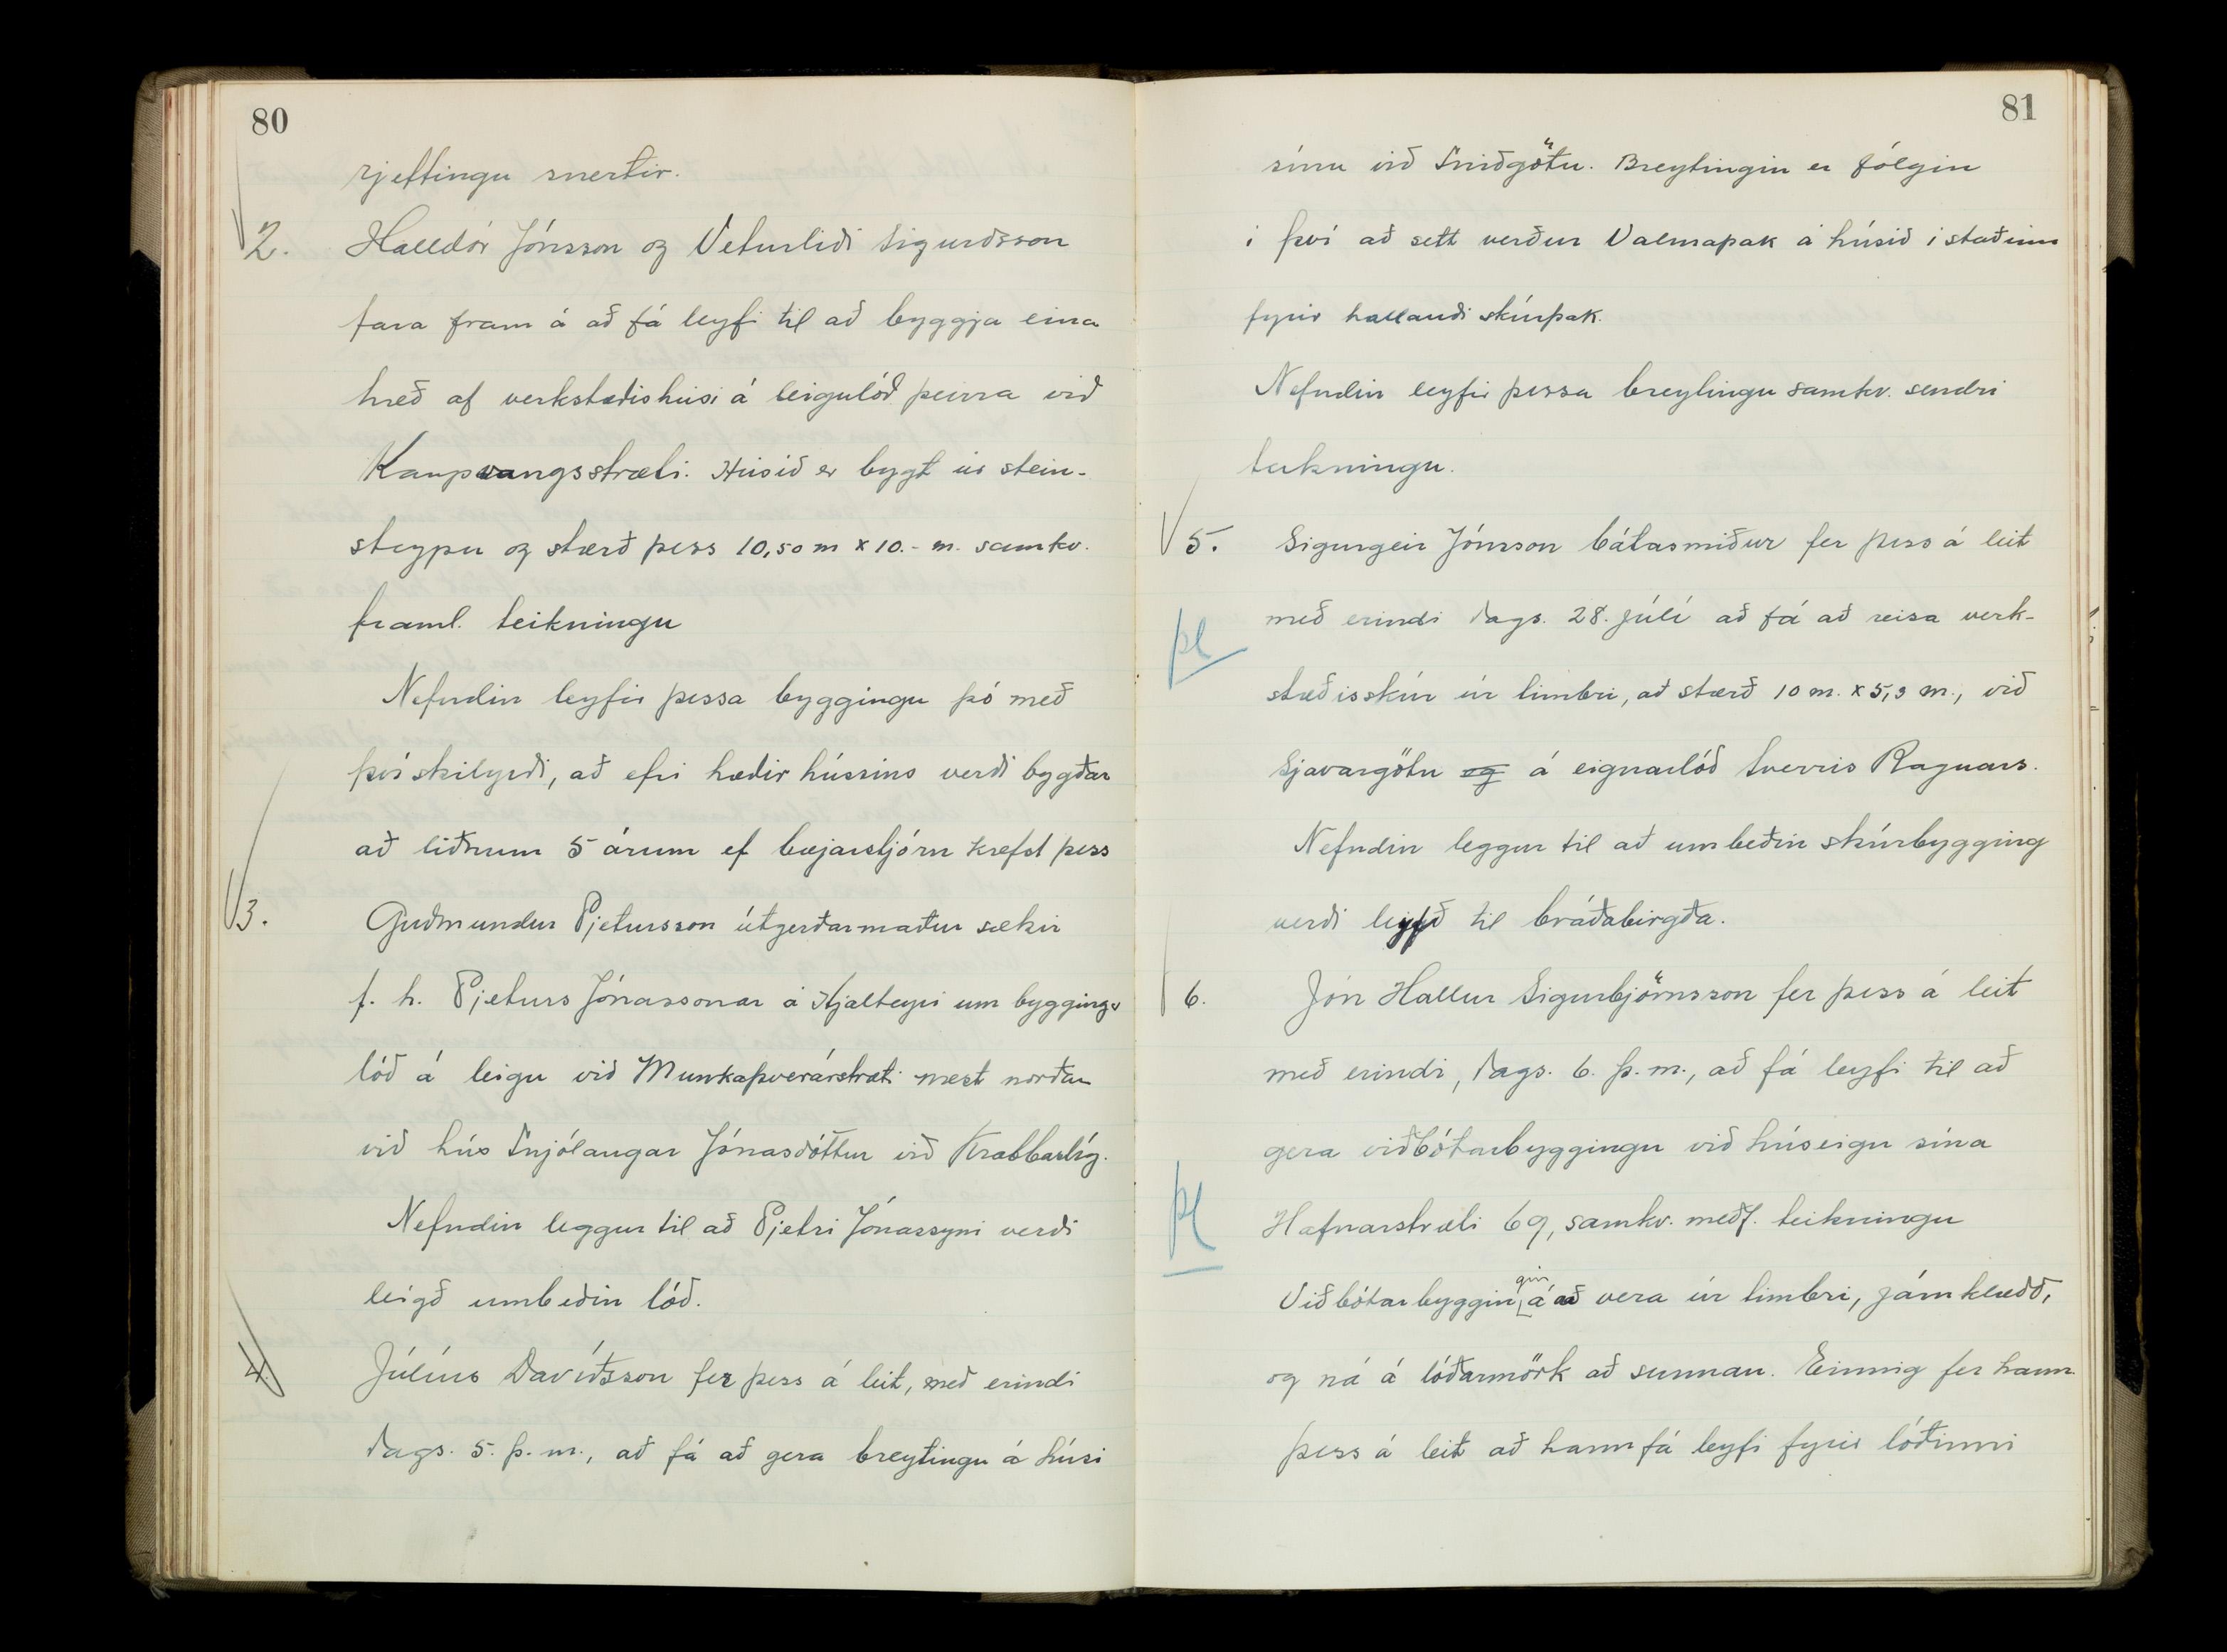 80
rjettingu snertir.
2. Halldór Jónsson og Veturliði Sigurðsson
fara fram á að fá leyfi til að byggja eina
hæð af verkstæðishúsi á leigulóð þeirra við
Kaupvangsstræti. Húsið er bygt úr stein-
steypu og stærð þess 10,50 m x 10.- m. samkv.
framl. teikningu
Nefndin leyfir þessa byggingu þó með
því skilyrði, að efri hæðir hússins verði bygðar
að liðnum 5 árum ef bæjarstjórn krefst þess
3. Guðmundur Pjetursson útgerðarmaður sækir
f. h. Pjeturs Jónassonar á Hjalteyri um bygginga
lóð á leigu við Munkaþverárstræti næst norðan
við hús Snjólaugar Jónasdóttur við Krabbastíg.
Nefndin leggur til að Pjetri Jónassyni verði
leigð umbeðin lóð.
4. Júlíus Davíðsson fer þess á leit, með erindi
dags. 5. þ. m., að fá að gera breytingu á húsi
81
sínu við Sniðgötu. Breytingin er fólgin
í því að sett verður Valmaþak á húsið í staðinn
fyrir hallandi skúrþak.
Nefndin leyfir þessa breytingu samkv. sendri
teikningu.
5. Sigurgeir Jónsson bátasmiður fer þess á leit
með erindi dags. 28. júlí að fá að reisa verk-
þl
stæðisskúr úr timbri, að stærð 10 m. x 5,3 m., við
Sjávargötu og á eignarlóð Sverris Ragnars.
Nefndin leggur til að umbeðin skúrbygging
verði leyfð til bráðabirgða.
6. Jón Hallur Sigurbjörnsson fer þess á leit
með erindi, dags. 6. þ. m., að fá leyfi til að
gera viðbótarbyggingu við húseign sína
þl
Hafnarstræti 69, samkv. meðf. teikningu
Viðbótarbyggingin á að vera úr timbri, járnklædd,
og ná á lóðarmörk að sunnan. Einnig fer hann
þess á leit að hann fá leyfi fyrir lóðinni